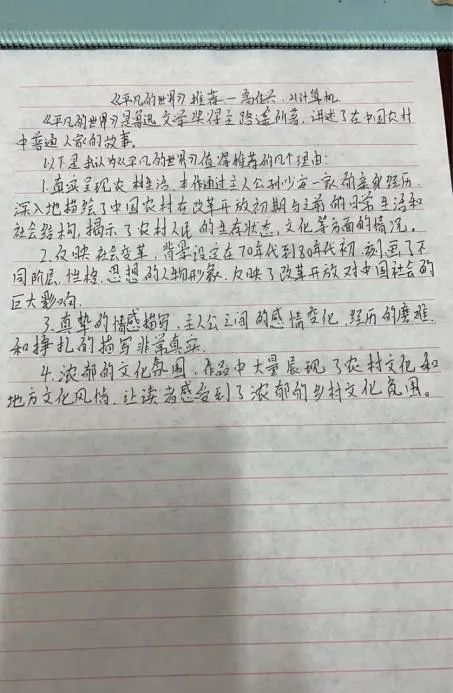 《平凡的世界》推荐—高佳兴 21计算机
《平凡的世界》是鲁迅文学奖得主路遥所著,讲述了在中国农村
中普通人家的故事。
以下是我认为《平凡的世界》值得推荐的几个理由:
1.真实呈现农村生活,本作通过主人公孙少安一家的亲身经历,
深入地描绘了中国农村在改革开放初期与之前的日常生活和
社会结构,揭示了农村人民的生存状态,文化等方面的情况。
2.反映社会变革,背景设定在70年代到80年代初,刻画了不
同阶层,性格,思想的人物形象,反映了改革开放对中国社会的
巨大影响.
3.真挚的情感描写,主人公之间的感情变化,经历的磨难,
和挣扎的描写非常真实.
4.浓郁的文化氛围,作品中大量展现了农村文化和
地方文化风情,让读者感受到了浓郁的乡村文化氛围。